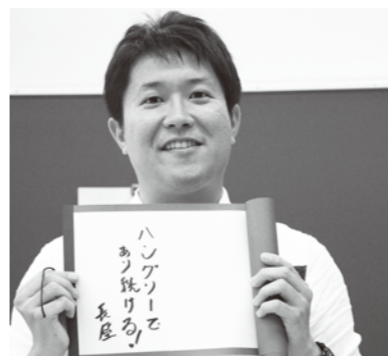 ハングリーで
あり続ける!
長屋